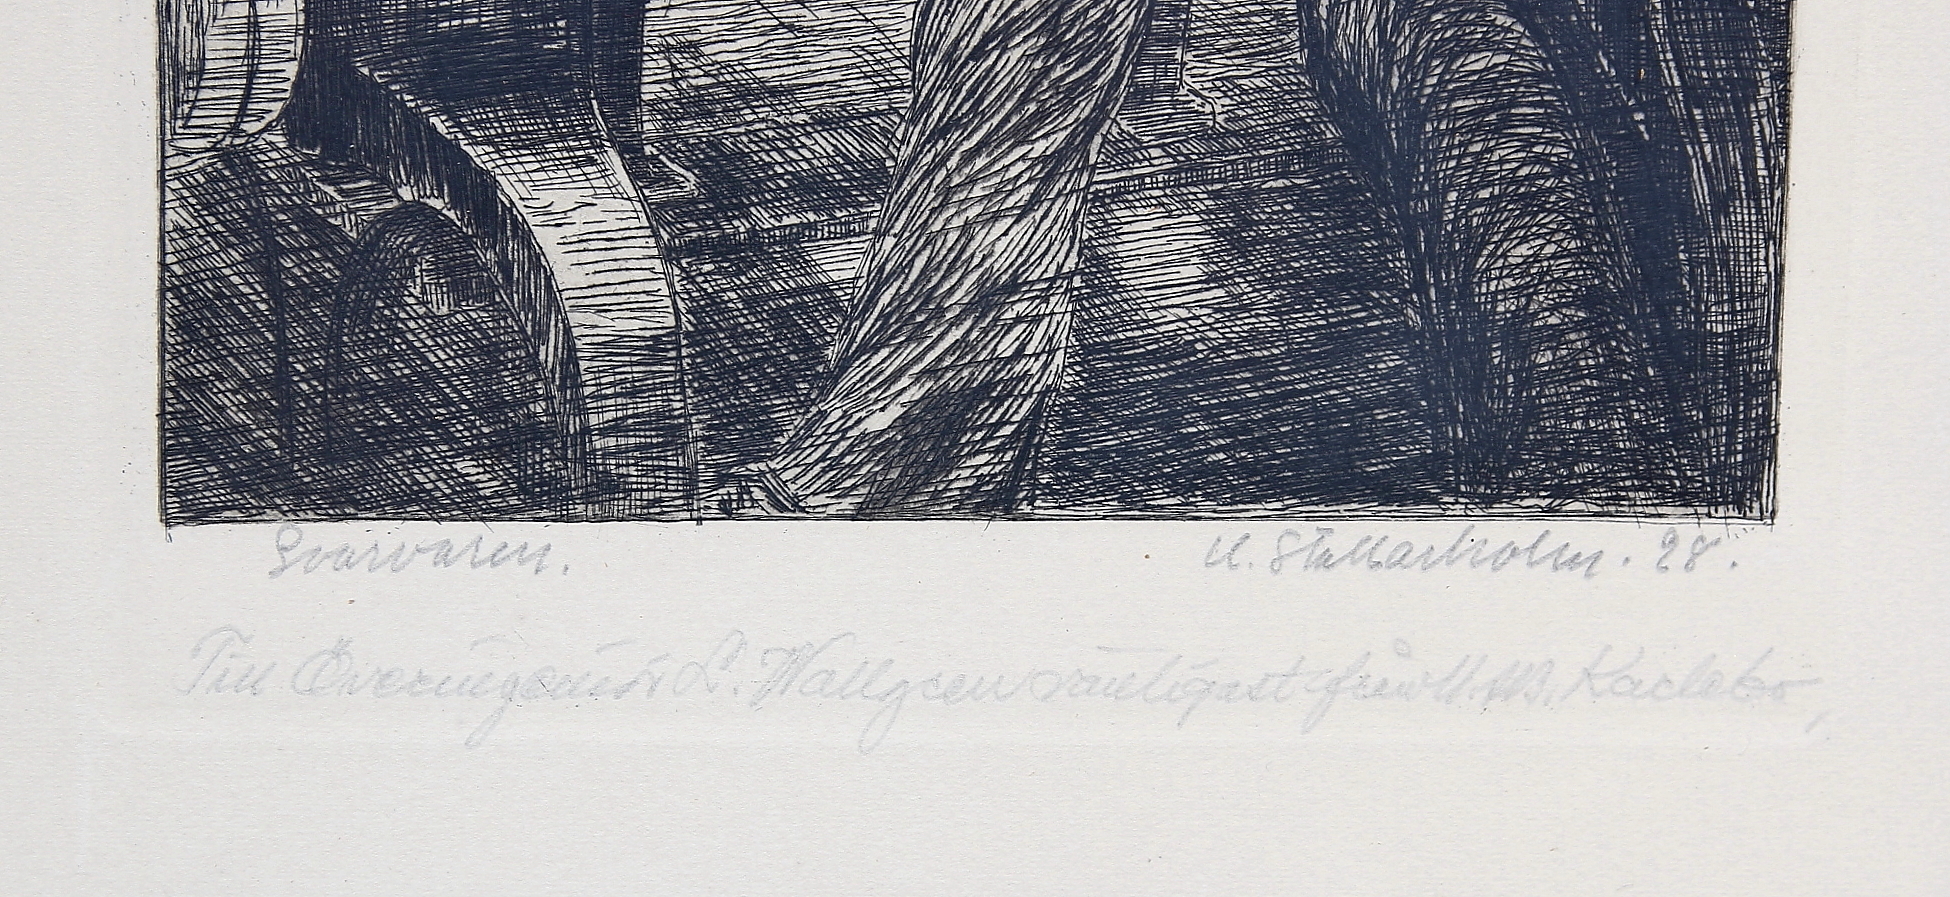 Svarvaren.
U. Stallarholm. 28.
Till Överingeniör L. Wallgren vänligast från Karlebo,